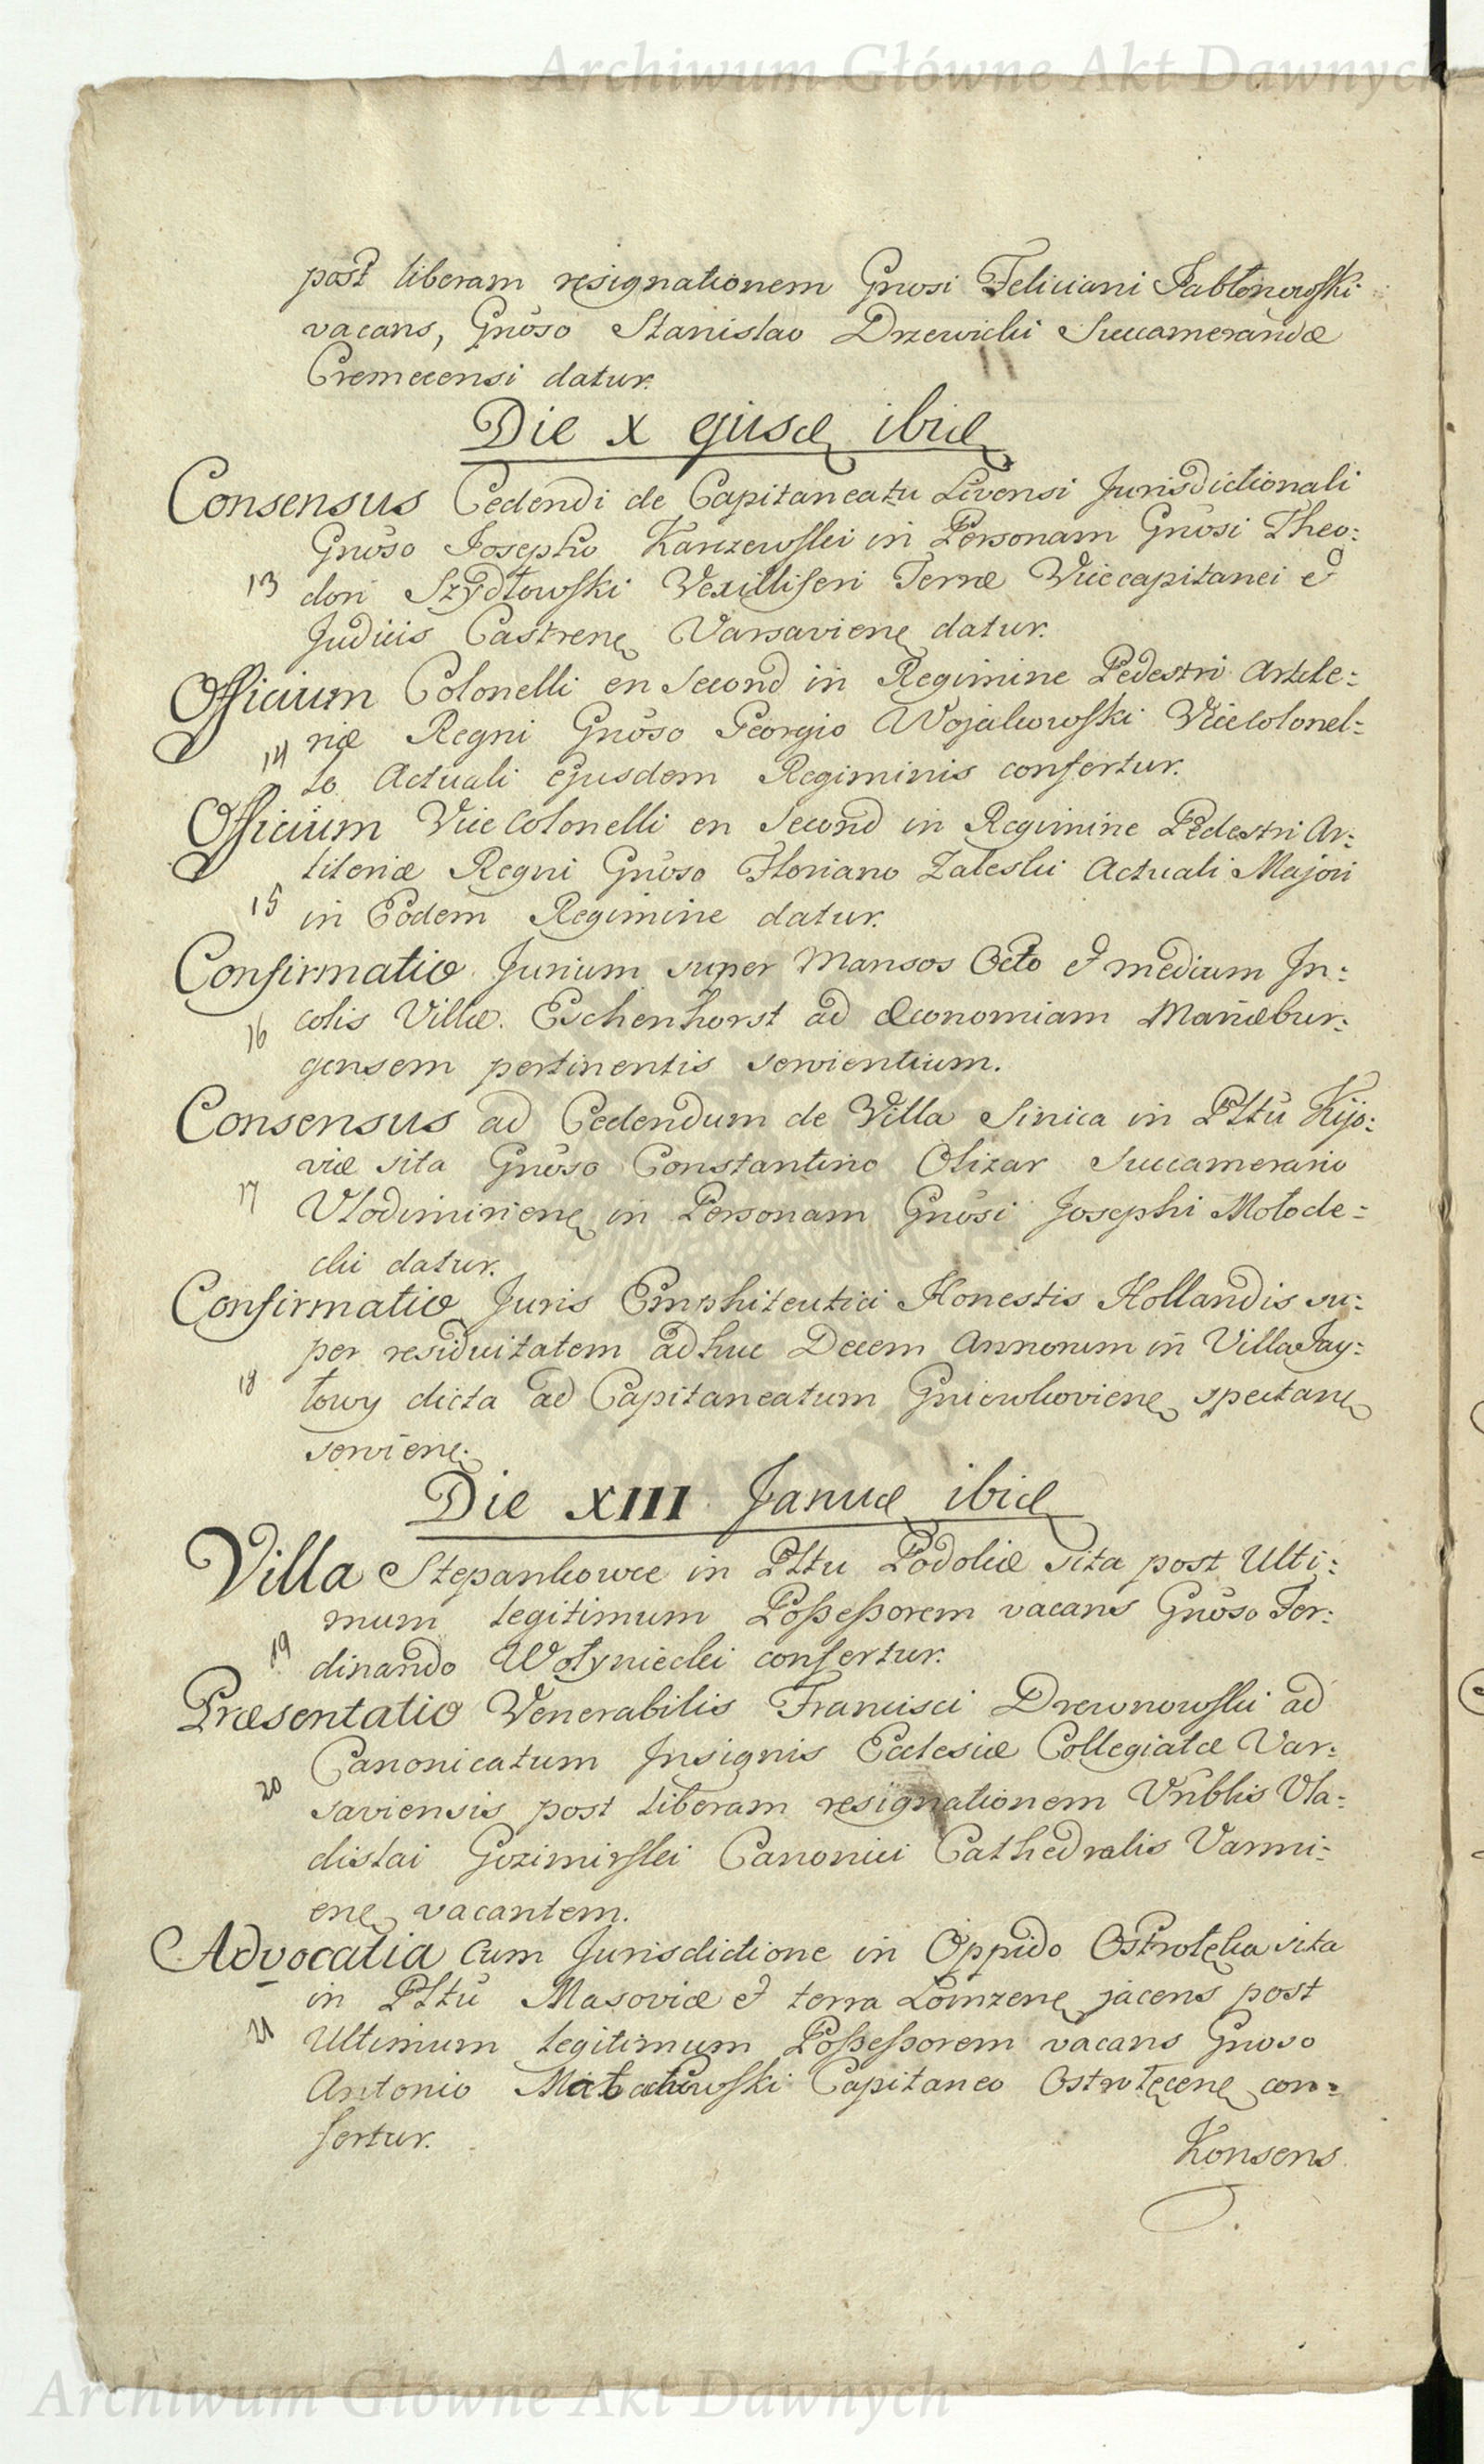 Archiwum Główne Akt Dawnych
post liberam resignationem Gnosi Feliciani Jabłonowski
vacans, Gnoso Stanislao Drzewicki Succamerandæ
Cremecensi datur.
Die X ejusd ibid
Consensus Cedendi de Capitaneatu Livensi Jurisdictionali
Gnoso Josepho Karczewski in Personam Gnosi Theo:
13 dori Szydłowski Vexilliferi Terræ Vicecapitanei et
Judicis Castren Varsavien datur.
Officium Colonelli en Second in Regimine Pedestri Artele:
14 riæ Regni Gnoso Georgio Wojakowski Vicecolonel:
lo Actuali ejusdem Regiminis confertur.
Officium Vice Colonelli en Second in Regimine Pedestri Ar:
tileriæ Regni Gnoso Floriano Zaleski Actuali Majori
15 in Eodem Regimine datur.
Confirmatio Jurium super Mansos Octo et medium In:
16 colis Villæ Eschenhorst ad Œconomiam Mariæbur:
gensem pertinentis servientium.
Consensus ad Cedendum de Villa Sinica in Pltu Kijo:
viæ sita Gnoso Constantino Olizar Succamerario
17 Vlodimirien in Personam Gnosi Josephi Mołode:
cki datur.
Confirmatio Juris Emphiteutici Honestis Hollandis su:
per residuitatem adhuc Decem Annorum in Villa Jay:
18 łowy dicta ad Capitaneatum Gniewkovien spectan
servien.
Die XIII Janua ibid
Villa Stepankowce in Pltu Podoliæ sita post Ulti:
mum legitimum Possessorem vacans Gnoso Fer:
19 dinando Wołyniecki confertur.
Præsentatio Venerabilis Francisci Drewnowski ad
Canonicatum Insignis Ecclesiæ Collegiatæ Var:
20 saviensis post liberam resignationem Vnblis Vla:
dislai Gozimirski Canonici Cathedralis Varmi:
en vacantem.
Advocatia cum Jurisdictione in Oppido Ostrołęka sita
in Pltu Masoviæ et terra Łomzen jacens post
21 Ultimum legitimum Possessorem vacans Gnoso
Antonio Małachowski Capitaneo Ostrołęcen con:
fertur.
Konsens
Archiwum Główne Akt Dawnych